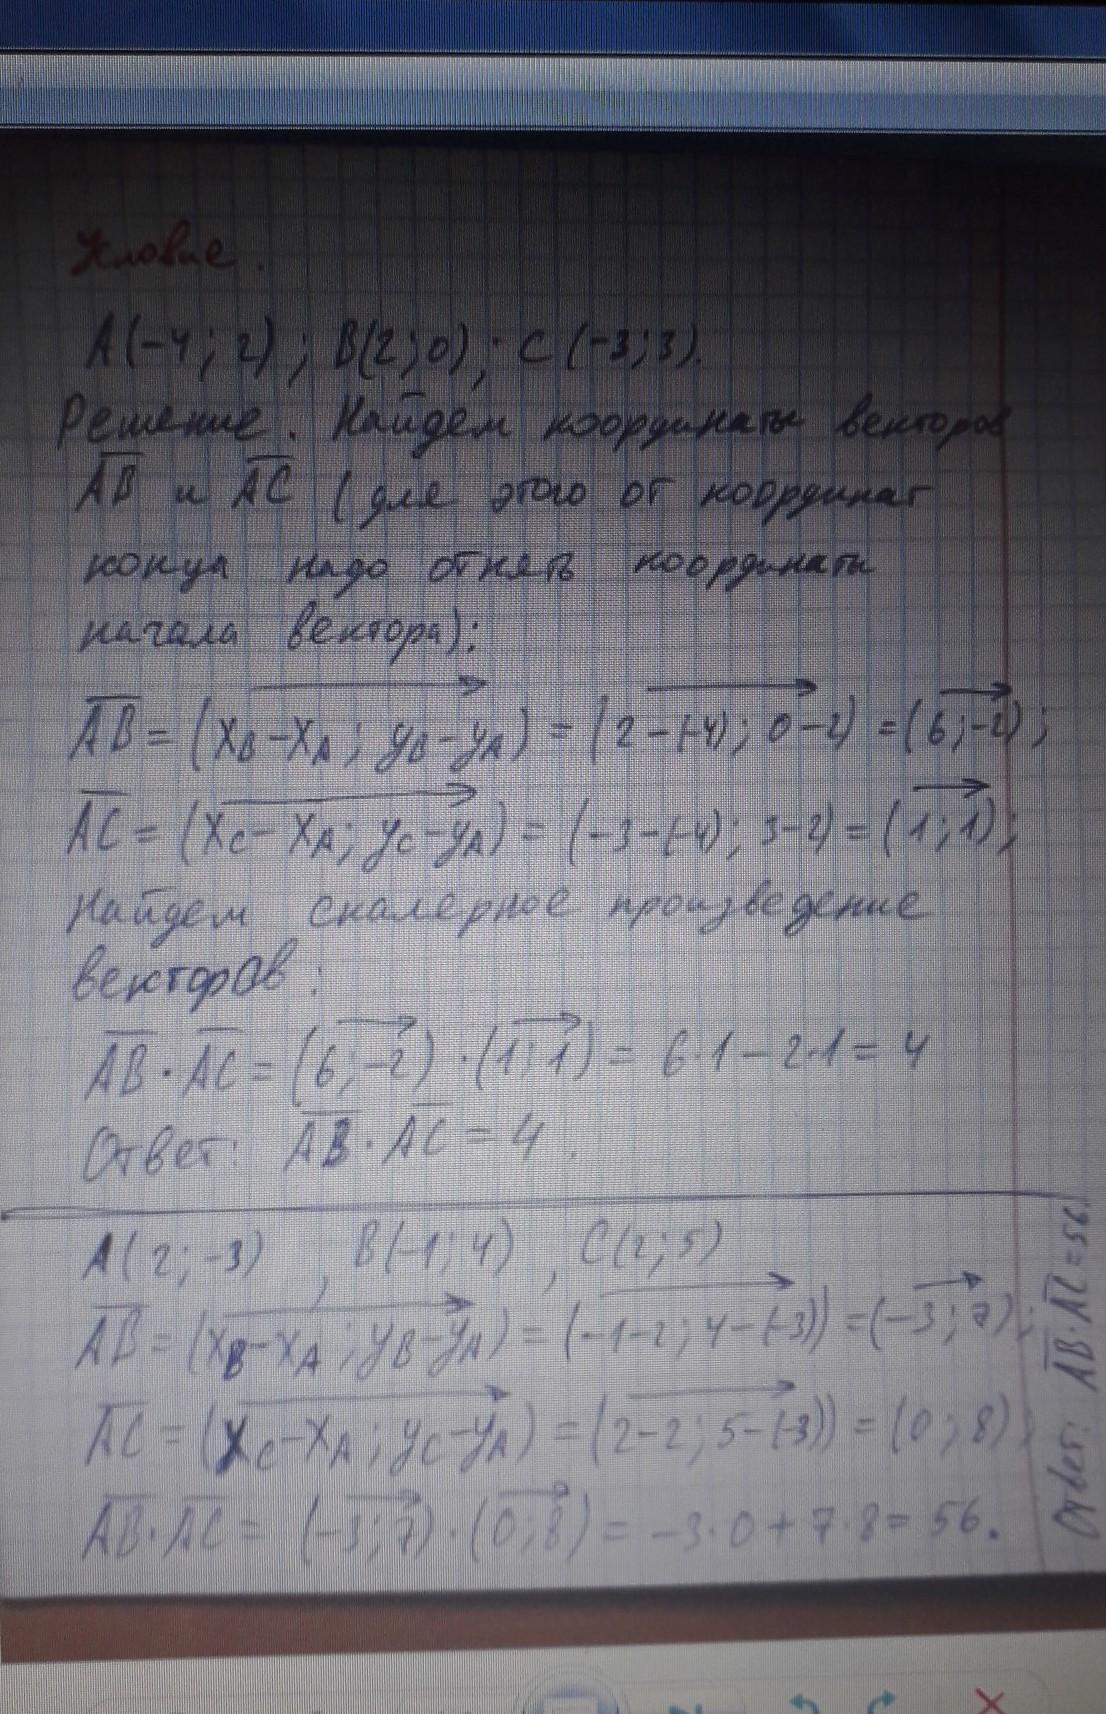 Условие.
A(-4; 2); B(2; 0); C(-3; 3).
Решение. Найдем координаты векторов
AB и AC (для этого от координат
конца надо отнять координаты
начала вектора):
AB = (xB-xA; yB-yA) = (2-(-4); 0-2) = (6; -2);
AC = (xC-xA; yC-yA) = (-3-(-4); 3-2) = (1; 1);
Найдем скалярное произведение
векторов:
AB · AC = (6; -2) · (1; 1) = 6·1 - 2·1 = 4
Ответ: AB · AC = 4.
A(2; -3), B(-1; 4), C(2; 5)
AB = (xB-xA; yB-yA) = (-1-2; 4-(-3)) = (-3; 7);
AC = (xC-xA; yC-yA) = (2-2; 5-(-3)) = (0; 8)
AB · AC = (-3; 7) · (0; 8) = -3·0 + 7·8 = 56.
Ответ: AB · AC = 56.